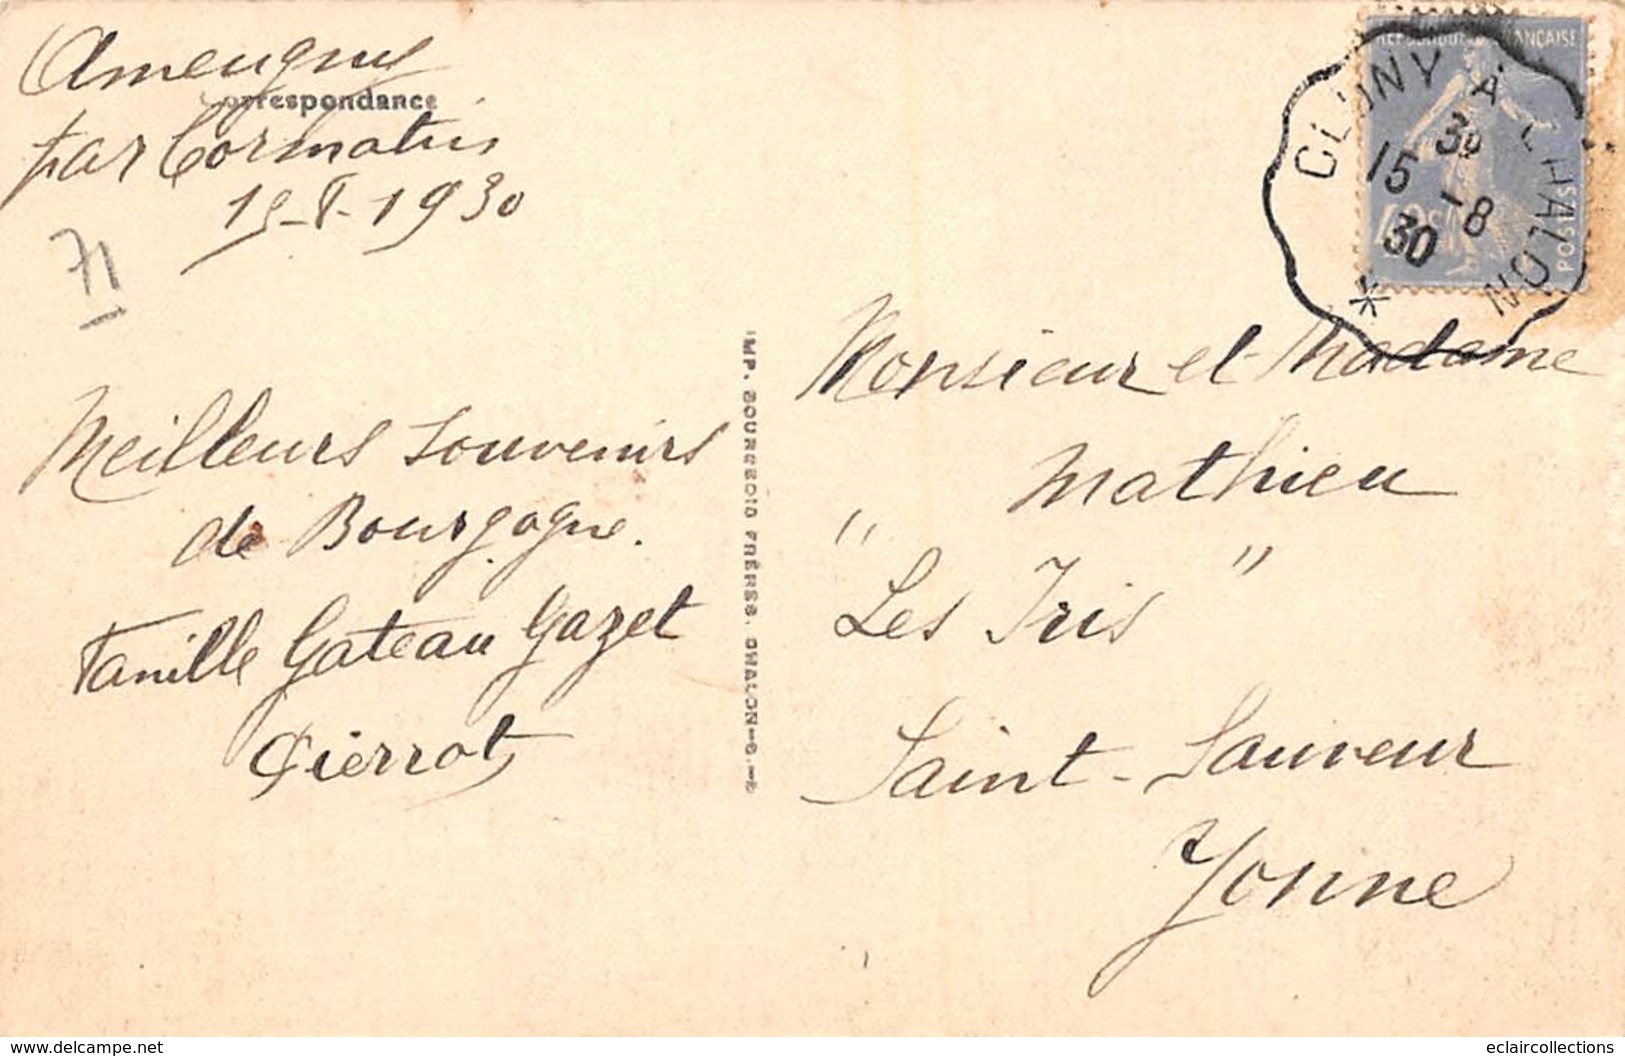 Ameugny
Correspondance
par Cormatin
15-8-1930
71
Meilleurs souvenirs
de Bourgogne.
Famille Gateau Gazet
Pierrot
IMP. BOURGEOIS FRÈRES. CHALON-S.-S
RÉPUBLIQUE FRANÇAISE
POSTES
CLUNY A CHALON
15 -8
30
*
Monsieur et Madame
Mathieu
" Les Iris "
Saint-Sauveur
Yonne
www.delcampe.net
eclaircollections